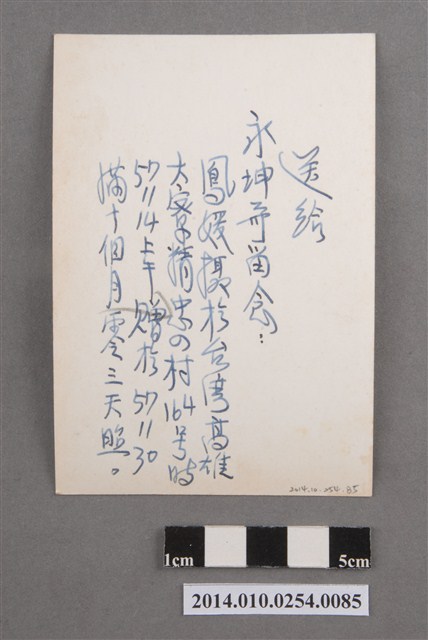 送給
永坤哥留念：
鳳嫒攝於台湾高雄
大寮精忠の村164号時
57 11 14上午贈於57 11 30
滿十個月零三天照。
2014.10.254.85
1cm 5cm
2014.010.0254.0085